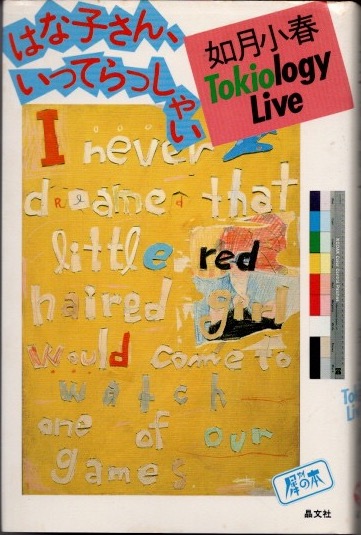 はな子さん、
いってらっしゃい
如月小春
Tokiology
Live
I never
dreamed that
little red
haired girl
would come to
watch
one of our
games
犀の本
晶文社